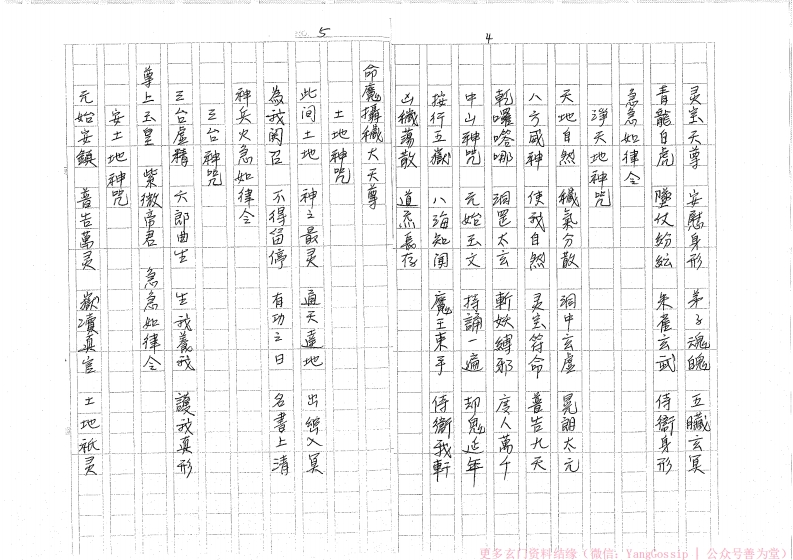 4
灵宝天尊 安慰身形 弟子魂魄 五臟玄冥
青龍白虎 墜仗紛紜 朱雀玄武 侍衞身形
急急如律令
淨天地神咒
天地自然 穢氣分散 洞中玄虛 晃朗太元
八方威神 使我自然 灵宝符命 普告九天
乾囉嗒哪 洞罡太玄 斬妖縛邪 度人萬千
中山神咒 元始玉文 持誦一遍 却鬼延年
按行五嶽 八海知聞 魔王束手 侍衞我軒
凶穢蕩散 道炁長存
5
命魔攝穢大天尊
土地神咒
此间土地 神之最灵 通天達地 出幽入冥
為我関召 不得留停 有功之日 名書上清
神兵火急如律令
三台神咒
三台虛精 六郎曲生 生我養我 護我真形
尊上玉皇 紫微帝君 急急如律令
安土地神咒
元始安鎮 普告萬灵 嶽瀆真官 土地祇灵
更多玄门资料结缘（微信：YangGossip | 公众号善为堂）